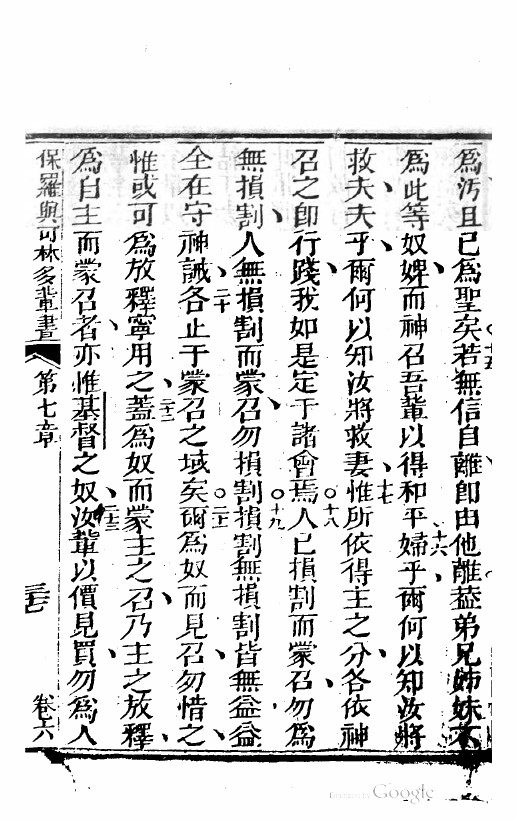 為污且已為聖矣○十五若無信自離即由他離葢弟兄姊妹不
為此等奴婢、而神召吾輩以得和平、十六婦乎、爾何以知汝將
救夫、夫乎、爾何以知汝將救妻、十七惟所依得主之分、各依神
召之即行踐、我如是定于諸會焉○十八人已損割而蒙召、勿為
無損割、人無損割而蒙召、勿損割○十九損割無損割皆無益、益
全在守神誡、二十各止于蒙召之域矣○二十一爾為奴而見召、勿惜之、
惟或可為放釋、寧用之、二十二蓋為奴而蒙主之召、乃主之放釋、
為自主而蒙召者、亦惟基督之奴、二十三汝輩以價見買、勿為人
保羅與可林多輩書 第七章 卷六
Digitized by Google